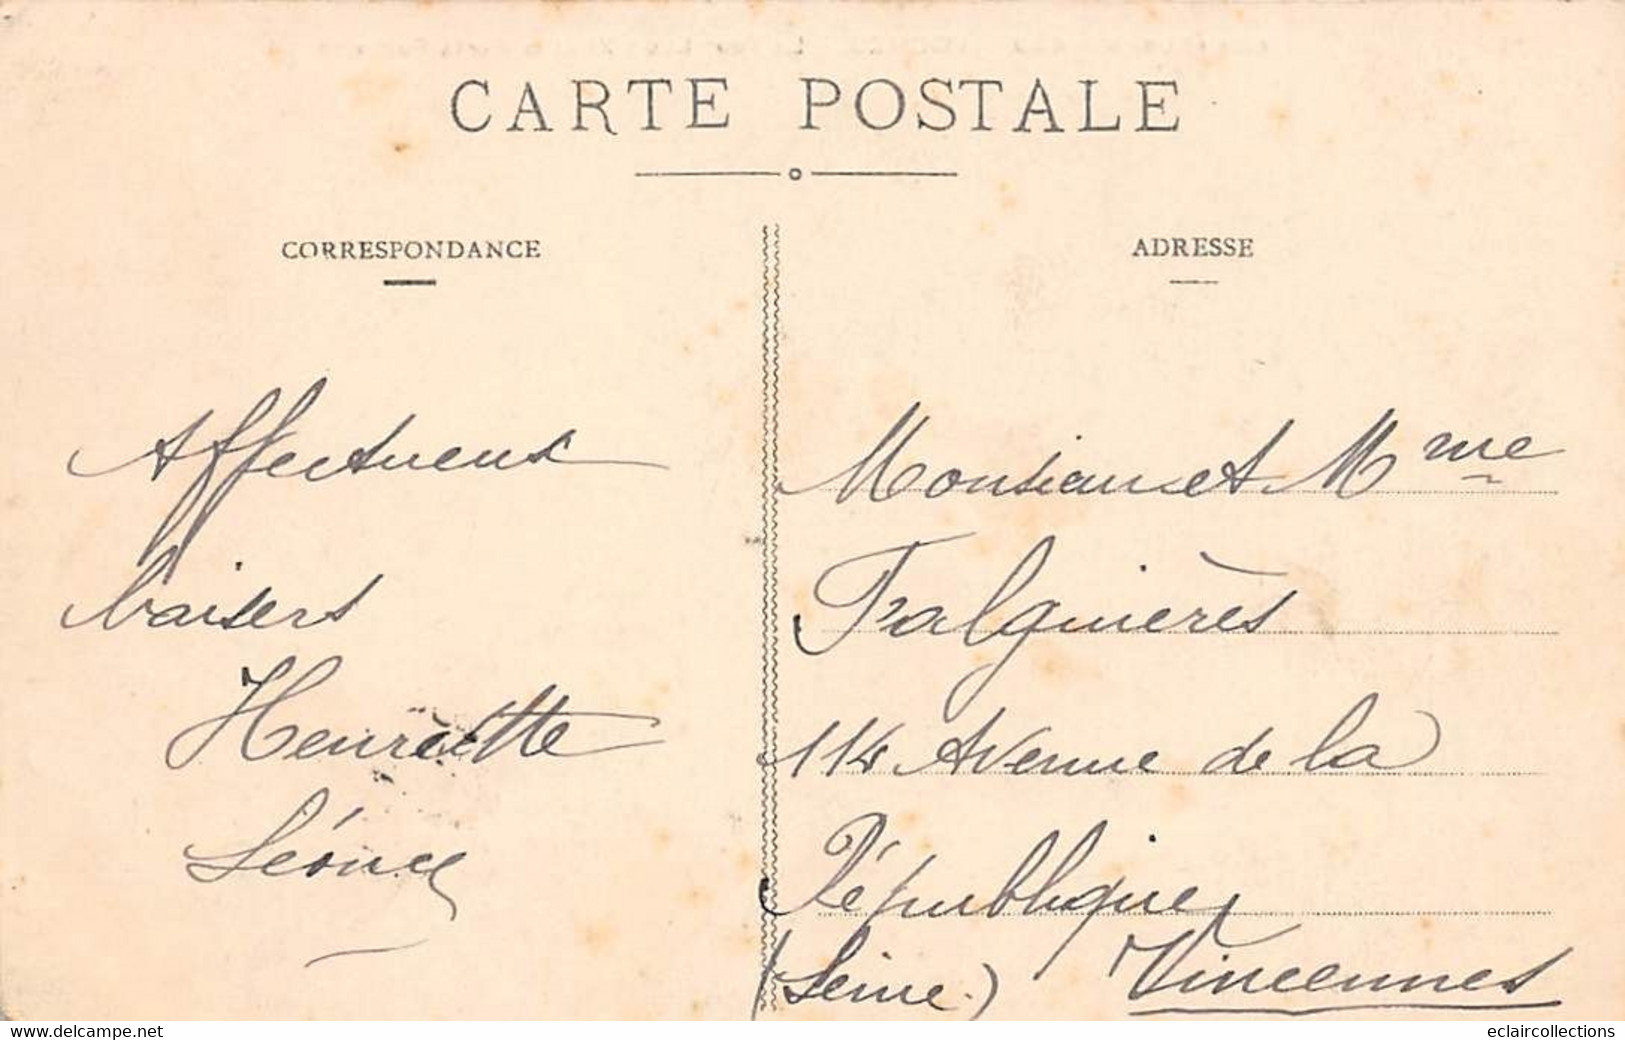 CARTE POSTALE
CORRESPONDANCE
Affectueux
baisers
Henriette
Léonce
ADRESSE
Monsieur et Mme
Falguières
114 Avenue de la
République
(Seine) Vincennes
www.delcampe.net
eclaircollections